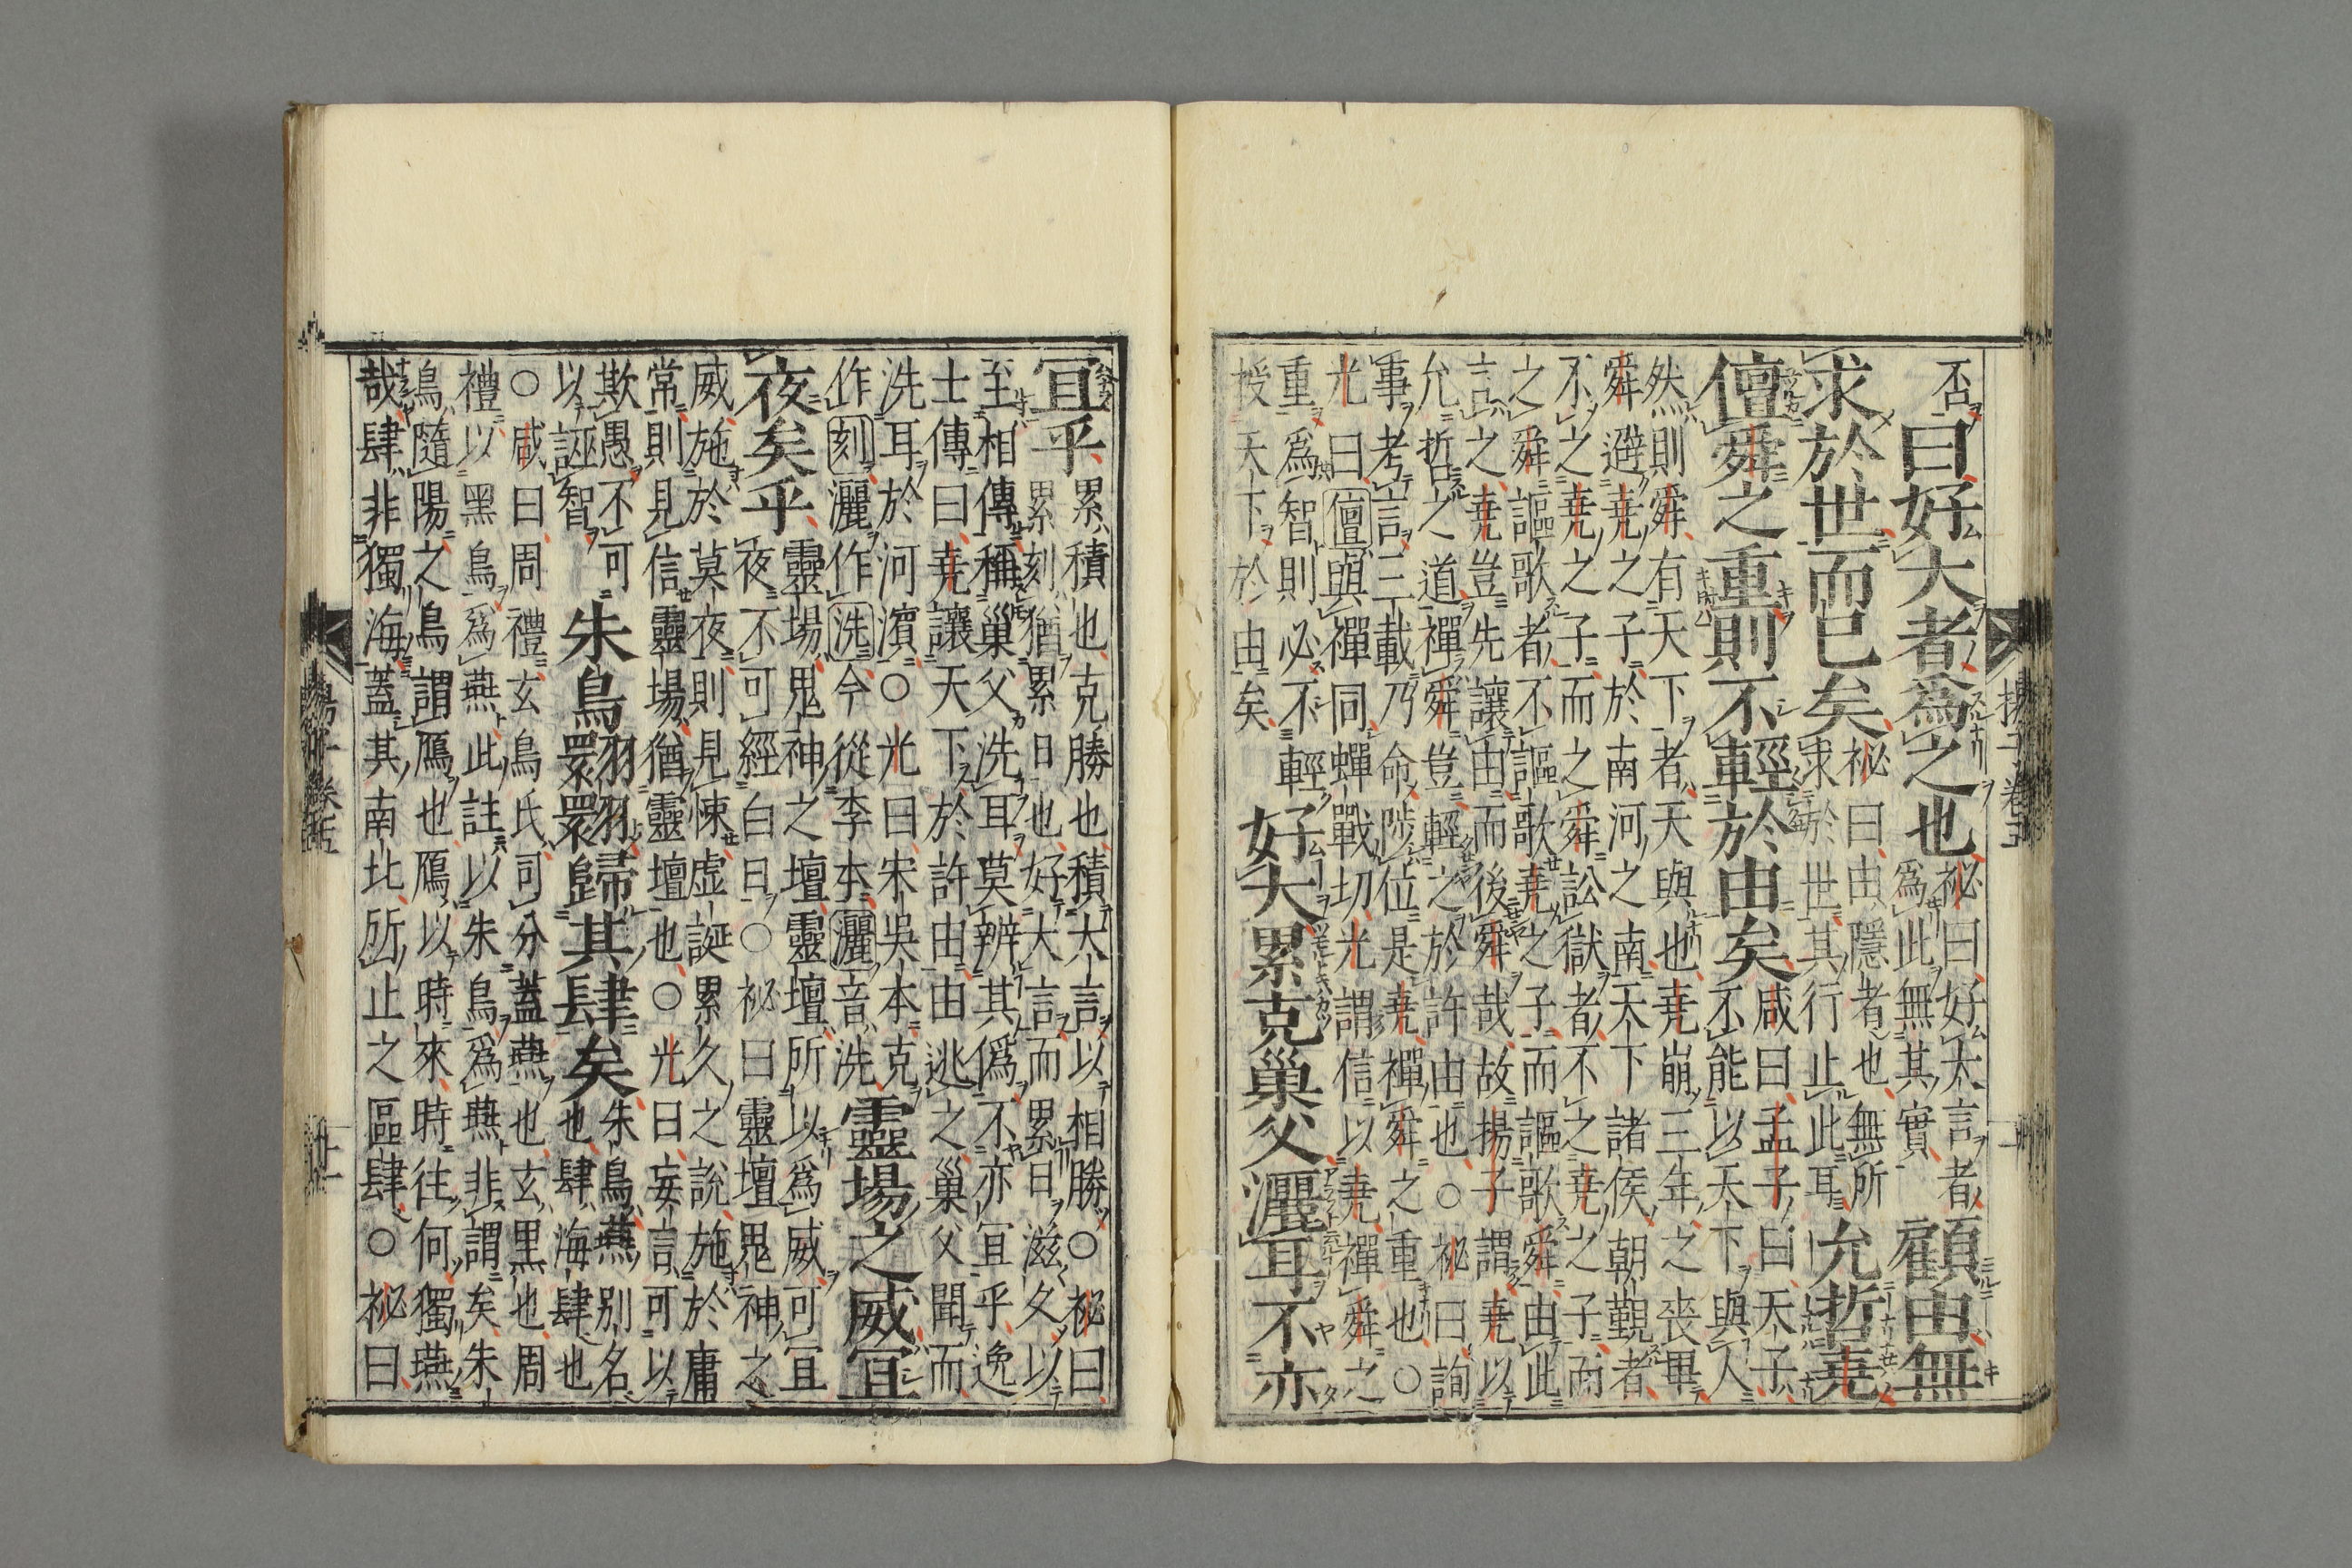 否曰好大者爲之也祕曰好大言者
爲此無其實顧由無
求於世而已矣祕曰由隱者也無所
求於世其行止此耳允哲堯
儃舜之重則不輕於由矣咸曰孟子曰天子
不能以天下與人
然則舜有天下者天與也堯崩三年之喪畢
舜避堯之子於南河之南天下諸侯朝覲者
不之堯之子而之舜訟獄者不之堯之子而
之舜謳歌者不謳歌堯之子而謳歌舜由此
言之堯豈先讓由而後舜哉故揚子謂堯以
允哲之道禪舜豈輕之於許由也○祕曰詢
事考言三載乃命陟位是堯禪舜之重也○
光曰儃與禪同蟬戰切光謂信以堯禪舜之
重爲智則必不輕
授天下於由矣好大累克巢父灑耳不亦
宜乎累積也克勝也積大言以相勝○祕曰
累刻猶累日也好大言而累日滋久以
至相傳稱巢父洗耳莫辨其僞不亦宜乎逸
士傳曰堯讓天下於許由由逃之巢父聞而
洗耳於河濱○光曰宋吳本克
作刻灑作洗今從李本灑音洗靈場之威宜
夜矣乎靈場鬼神之壇靈壇所以爲威可宜
夜不可經白日○祕曰靈壇鬼神之
威施於莫夜則見悚虛誕累久之說施於庸
常則見信靈場猶靈壇也○光曰妄言可以
欺愚不可
以誣智朱鳥翾翾歸其肆矣朱鳥燕別名
也肆海肆也
○咸曰周禮玄鳥氏司分蓋燕也玄黑也周
禮以黑鳥爲燕此註以朱鳥爲燕非謂矣朱
鳥隨陽之鳥謂鴈也鴈以時來時往何獨燕
哉肆非獨海蓋其南北所止之區肆○祕曰
揚子卷五